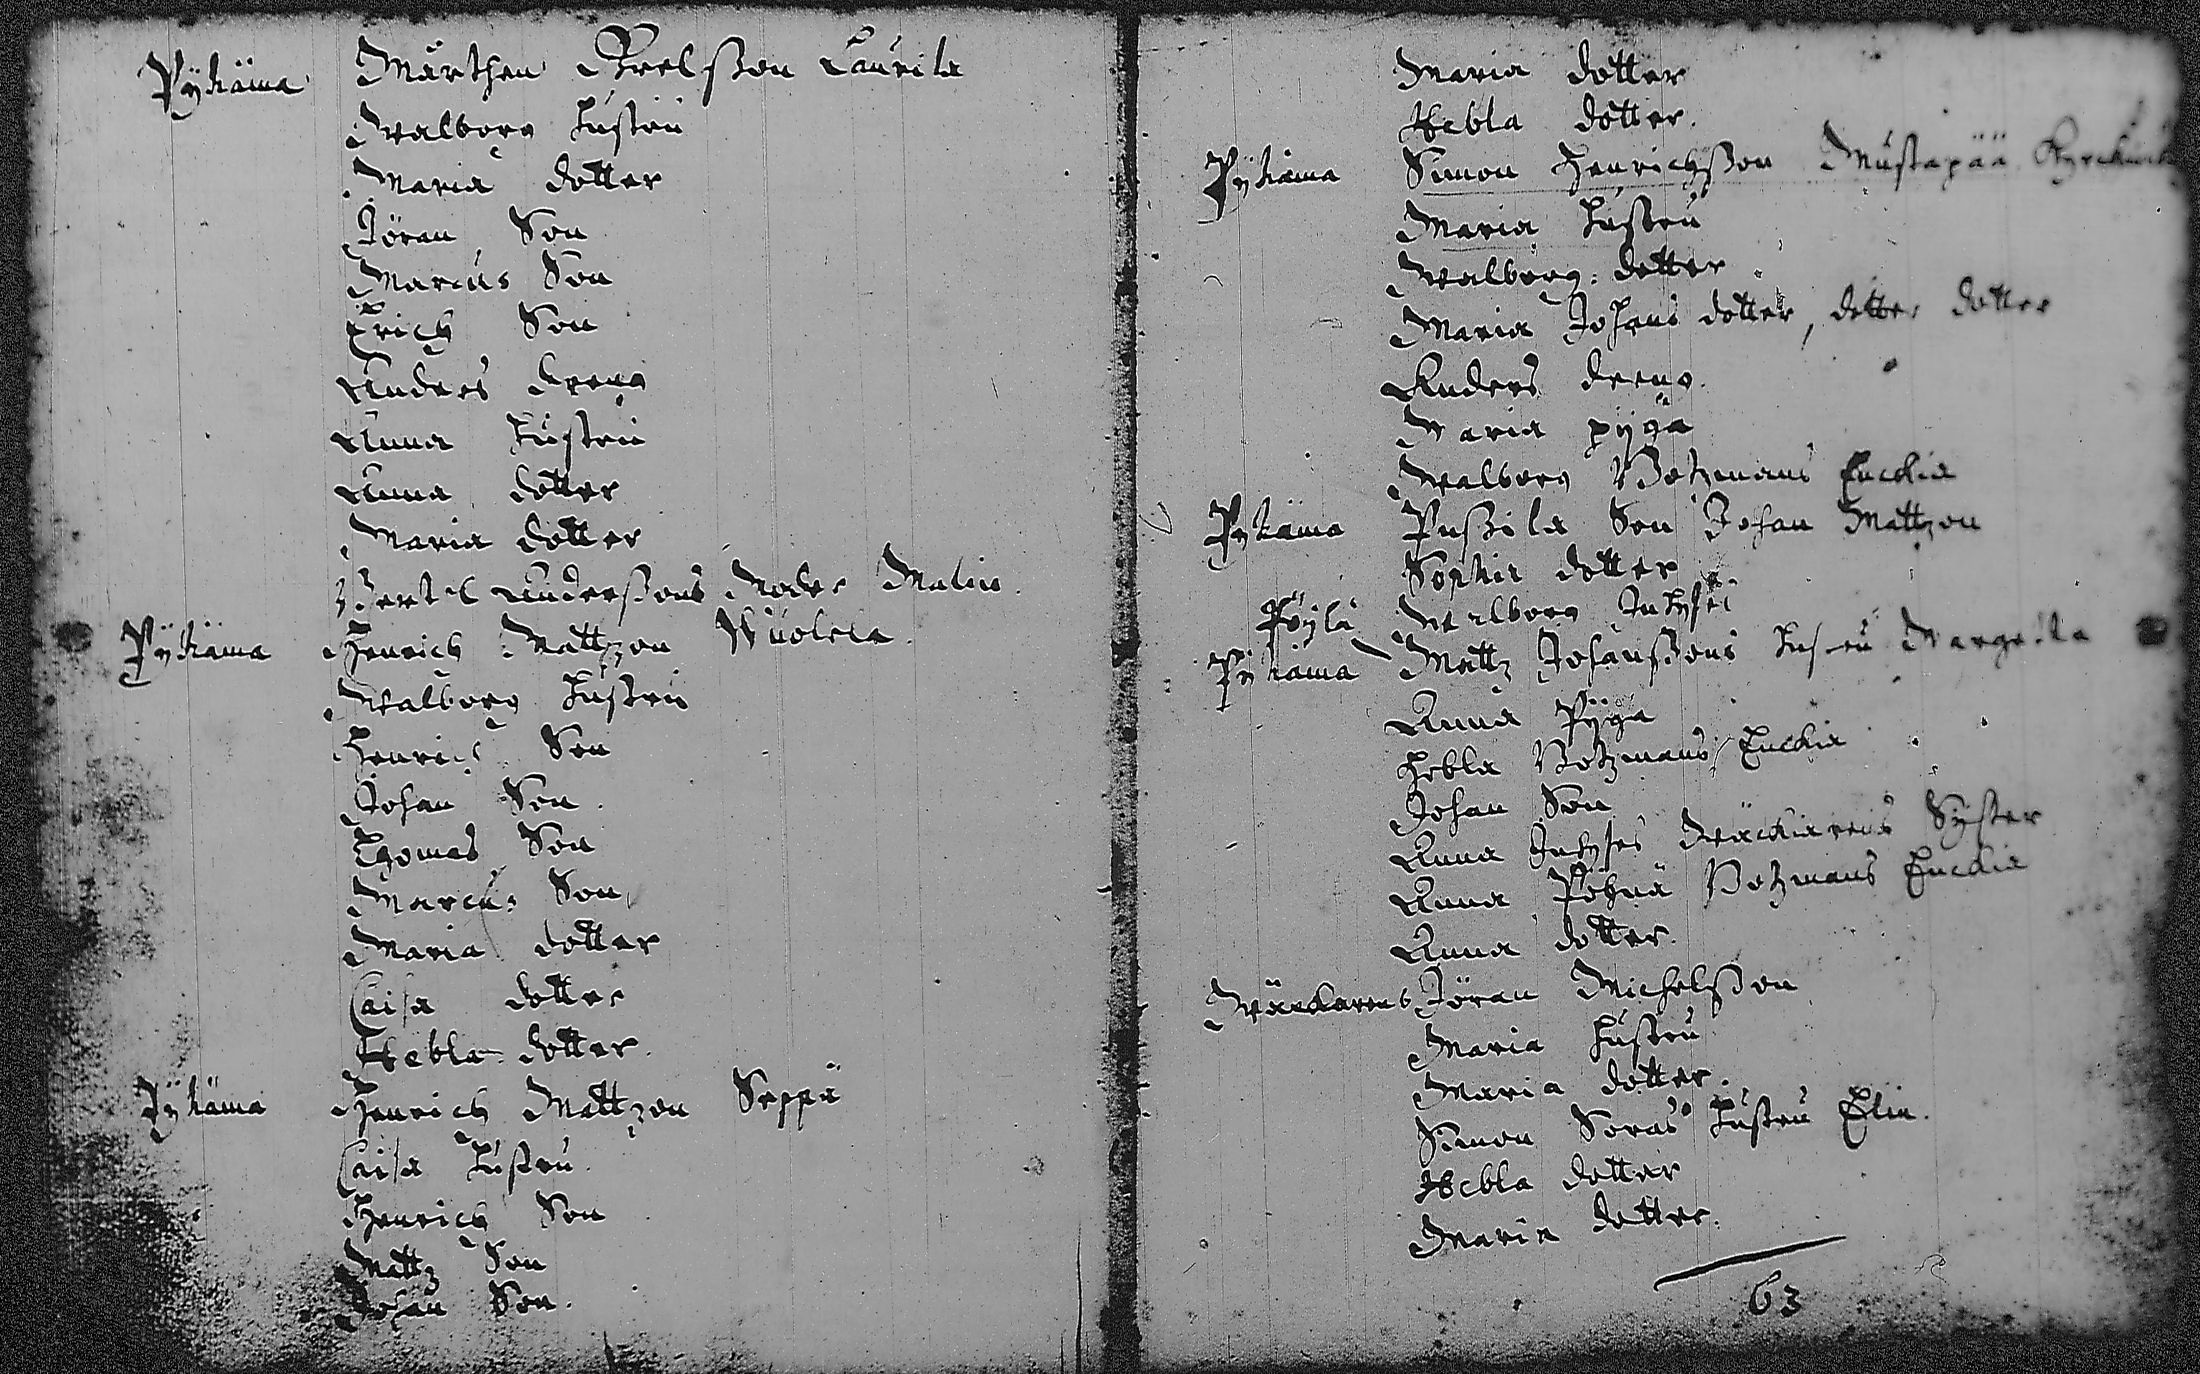 Pÿhäma Mårthen Grelsson Laurila
Walborg hustru
Maria dotter
Jöran Son
Marcus Son
Erich Son
Anders dreng
Anna hustru
Anna dotter
Maria dotter
Bertil Anderssons Moder Malin.
Pÿhäma Henrich Mattzon Wuolela.
Walborg hustru
Henrich Son
Johan Son.
Thomas Son
Marcus Son
Maria dotter
Caisa dotter
Hebla dotter.
Pÿhäma Henrich Mattzon Seppä
Caisa hustru.
Henrich Son
Mattz Son
Johan Son.
Maria dotter
Hebla dotter.
Pÿhäma Simon Henrichsson Mustapää
Maria hustru
Walborg dotter
Maria Johans dotter, dotter dotter
Anders dreng.
Maria pÿga
Walborg Botzmans Enckia
Pyhäma Son Johan Mattzon
Sophia dotter
Walborg Inhyses
Pÿhäma Mattz Johanssons hustru Margetta
Anna Pÿga
Hebla Botzmans Enckia
Johan Son
Anna Inhyses Wäckarens Sÿster
Anna Botzmans Enckia
Anna dotter.
Wäckarens Jöran Michelsson
Maria hustru
Maria dotter.
Simon Soras hustru Elin.
Hebla dotter
Maria dotter.
63